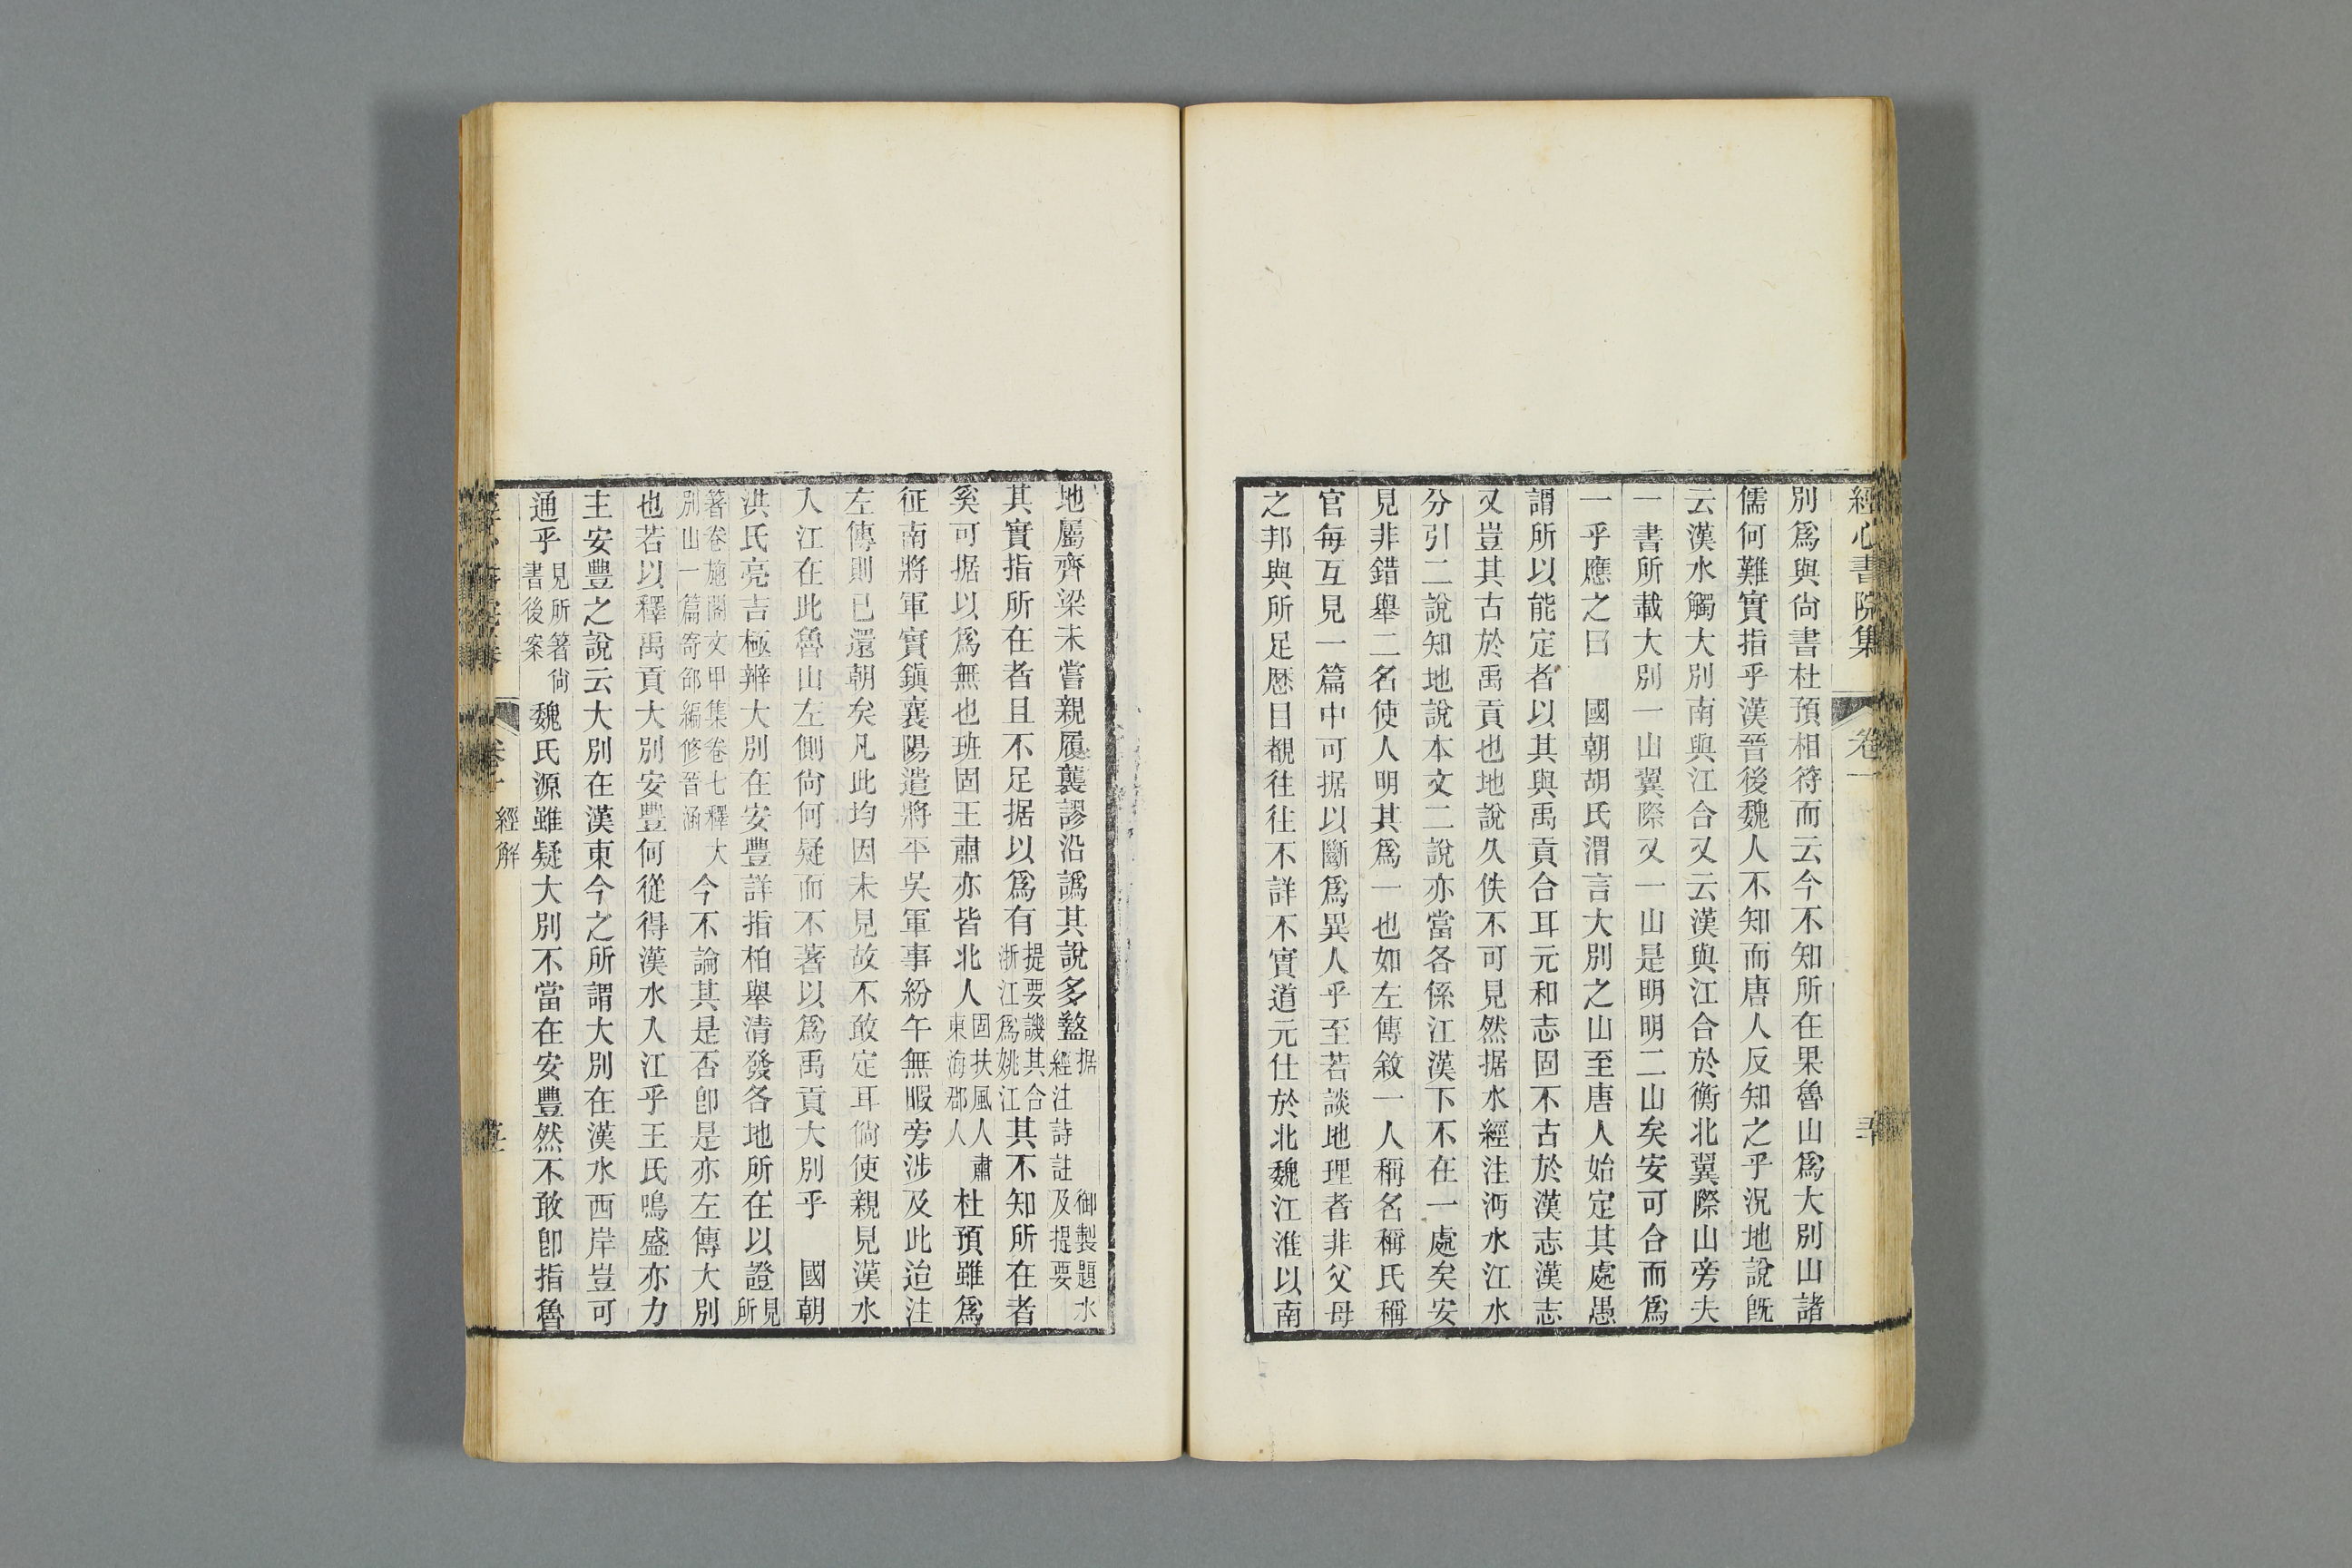 經心書院集 卷一
別爲與尙書杜預相符而云今不知所在果魯山爲大別山諸
儒何難實指乎漢晉後魏人不知而唐人反知之乎況地說旣
云漢水觸大別南與江合又云漢與江合於衡北翼際山旁夫
一書所載大別一山翼際又一山是明明二山矣安可合而爲
一乎應之曰　國朝胡氏渭言大別之山至唐人始定其處愚
謂所以能定者以其與禹貢合耳元和志固不古於漢志漢志
又豈其古於禹貢也地說久佚不可見然据水經注沔水江水
分引二說知地說本文二說亦當各係江漢下不在一處矣安
見非錯舉二名使人明其爲一也如左傳敘一人稱名稱氏稱
官每互見一篇中可据以斷爲異人乎至若談地理者非父母
之邦與所足歷目覩往往不詳不實道元仕於北魏江淮以南
地屬齊梁未嘗親履襲謬沿譌其說多盭据　御製題水
經注詩註及提要
其實指所在者且不足据以爲有提要譏其合
浙江爲姚江其不知所在者
奚可据以爲無也班固王肅亦皆北人固扶風人肅
東海郡人杜預雖爲
征南將軍實鎭襄陽遣將平吳軍事紛午無暇旁涉及此迨注
左傳則已還朝矣凡此均因未見故不敢定耳倘使親見漢水
入江在此魯山左側尙何疑而不著以爲禹貢大別乎　國朝
洪氏亮吉極辨大別在安豐詳指柏舉淸發各地所在以證見
所
著卷施閣文甲集卷七釋大
別山一篇寄邵編修晉涵今不論其是否卽是亦左傳大別
也若以釋禹貢大別安豐何從得漢水入江乎王氏鳴盛亦力
主安豐之說云大別在漢東今之所謂大別在漢水西岸豈可
通乎見所著尙
書後案魏氏源雖疑大別不當在安豐然不敢卽指魯
經解